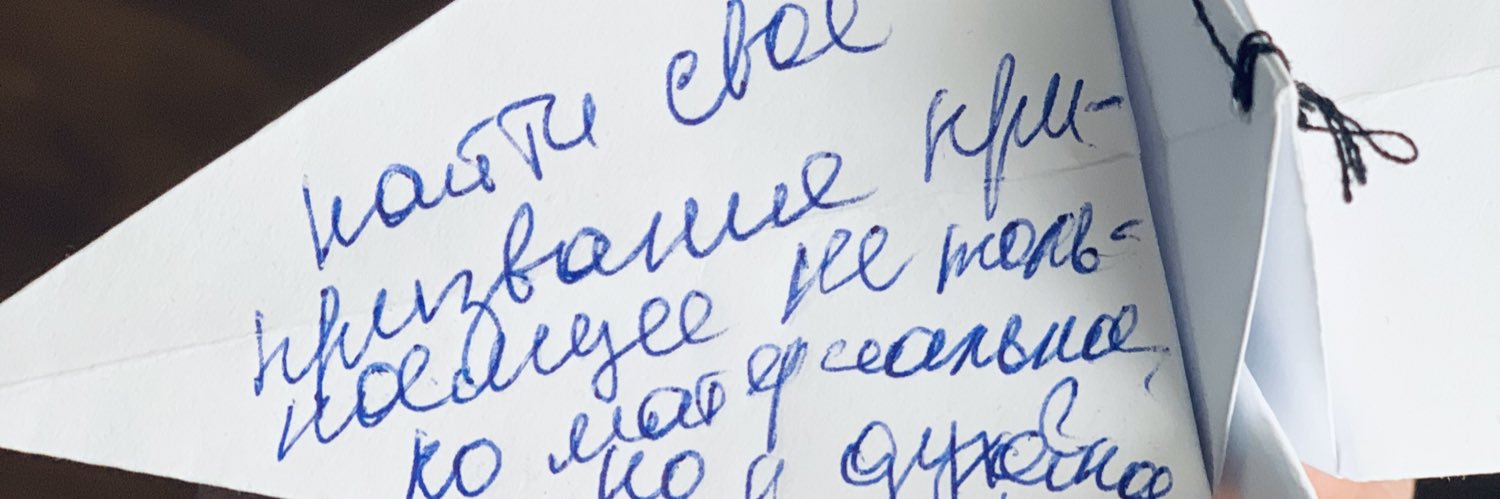 найти свое
призвание при-
носящее не толь-
ко материальное,
но и духовное